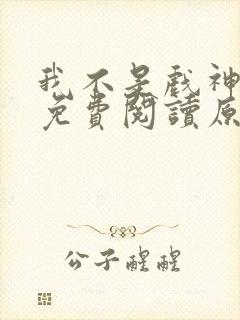 我不是戲神
免費閱讀原
公子醒醒